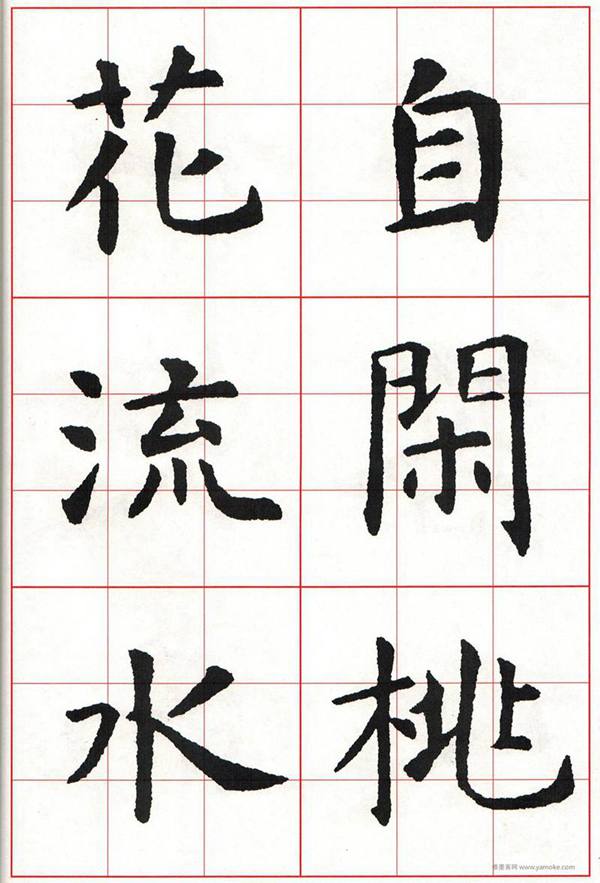 自閑桃
花流水
楷墨客网 www.yamoke.com